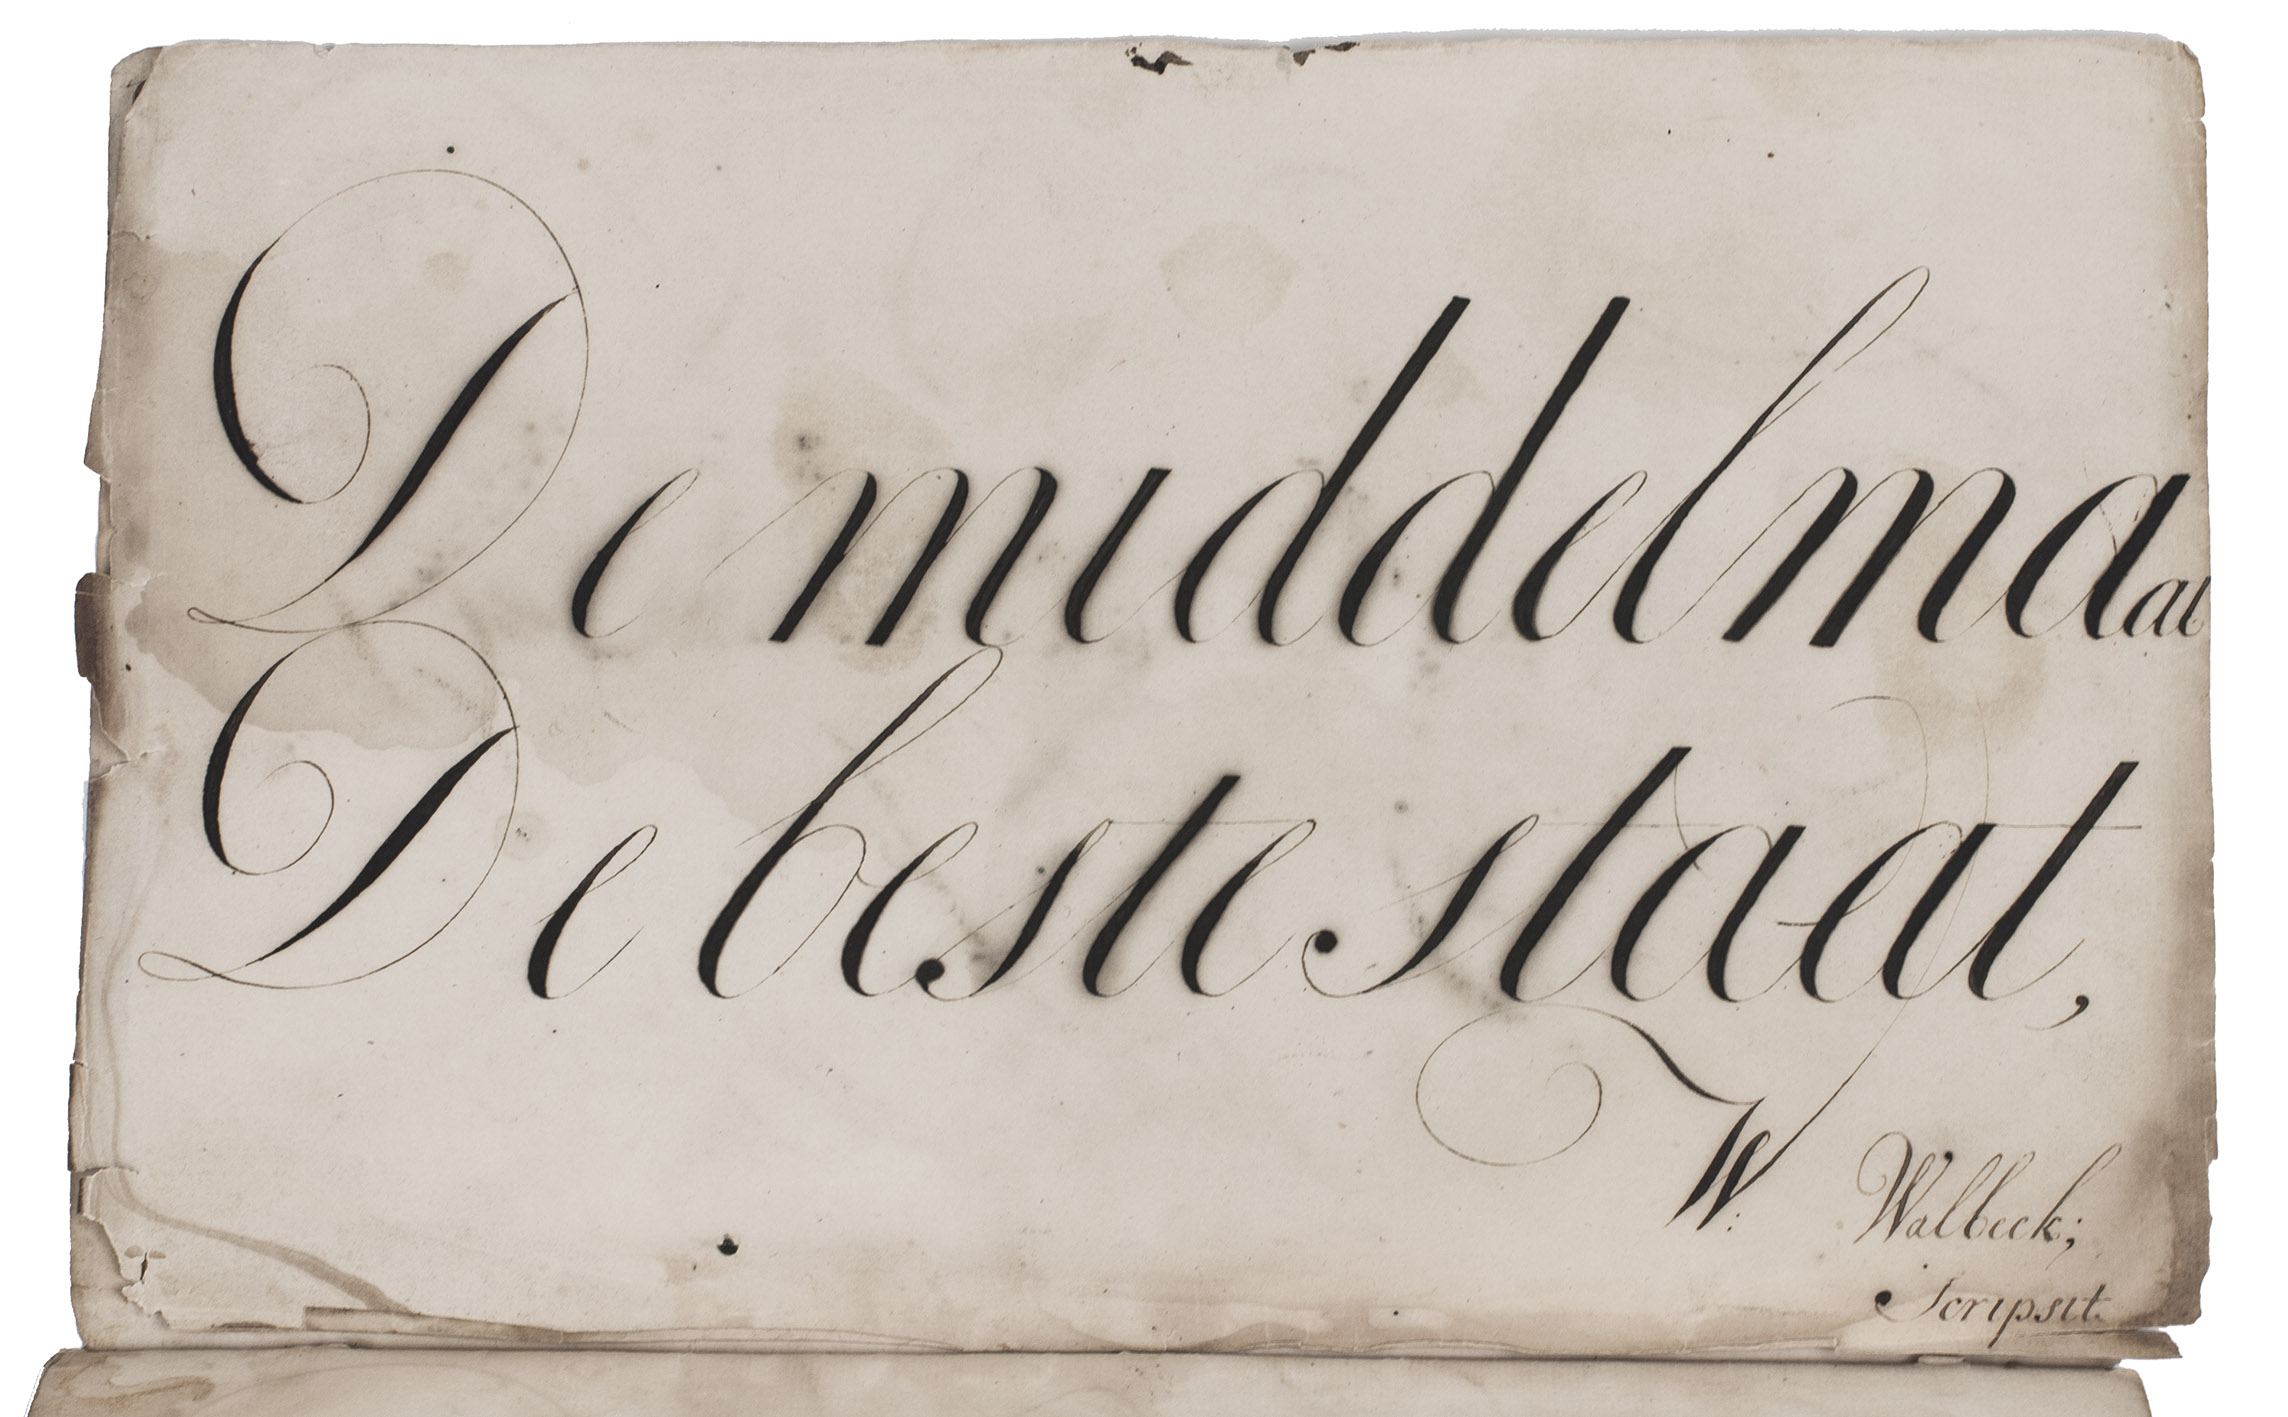 De middelmaat
De beste staat,
W: Walbeek;
Scripsit.